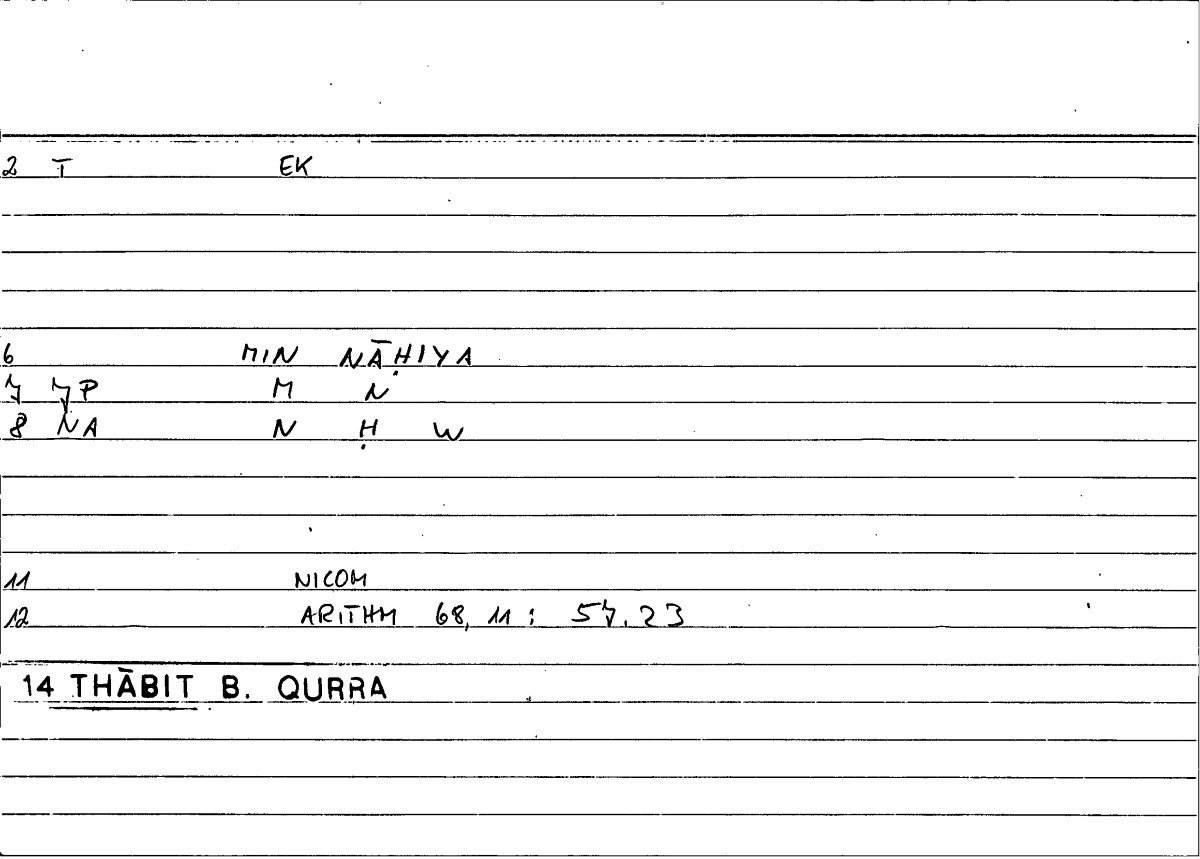 2 T EK
6 MIN NĀḤIYA
7 7P M N
8 NA N Ḥ W
11 NICOM
12 ARITHM 68, 11 : 57.23
14 THĀBIT B. QURRA